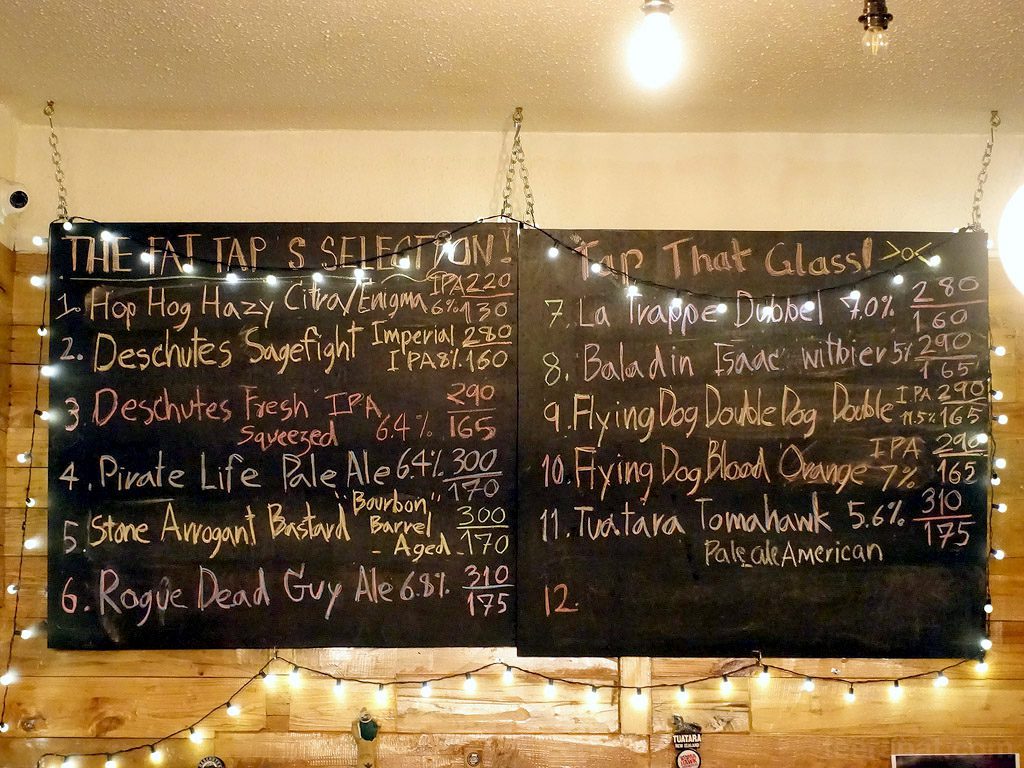 THE FAT TAP'S SELECTION!
1. Hop Hog Hazy Citra/Enigma IPA 6% 220 130
2. Deschutes Sagefight Imperial IPA 8% 280 160
3 Deschutes Fresh Squeezed IPA 6.4% 290 165
4. Pirate Life Pale Ale 6.4% 300 170
5. Stone Arrogant Bastard "Bourbon" Barrel - Aged - 300 170
6. Rogue Dead Guy Ale 6.8% 310 175
Tap That Glass! >o<
7. La Trappe Dubbel 7.0% 280 160
8. Baladin Isaac witbier 5% 290 165
9. Flying Dog Double Dog Double IPA 11.5% 290 165
10. Flying Dog Blood Orange IPA 7% 290 165
11. Tuatara Tomahawk 5.6% 310 175
Pale ale American
12.
TUATARA
NEW ZEALAND